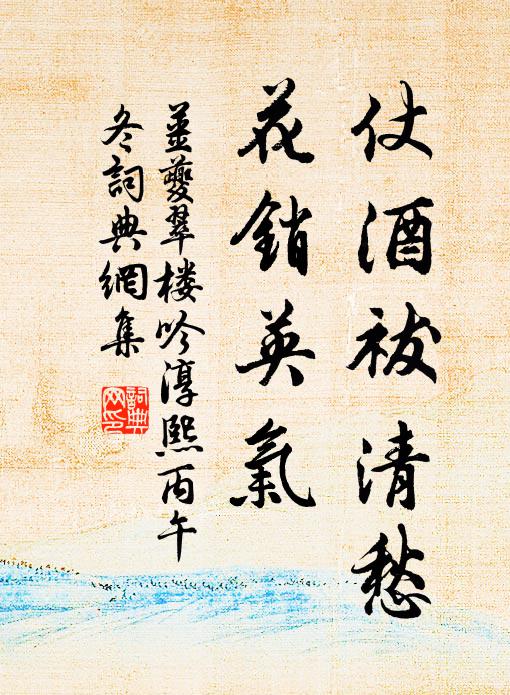 仗酒祓清愁
花銷英氣
姜夔翠楼吟淳熙丙午
冬詞典網集
詞典网印